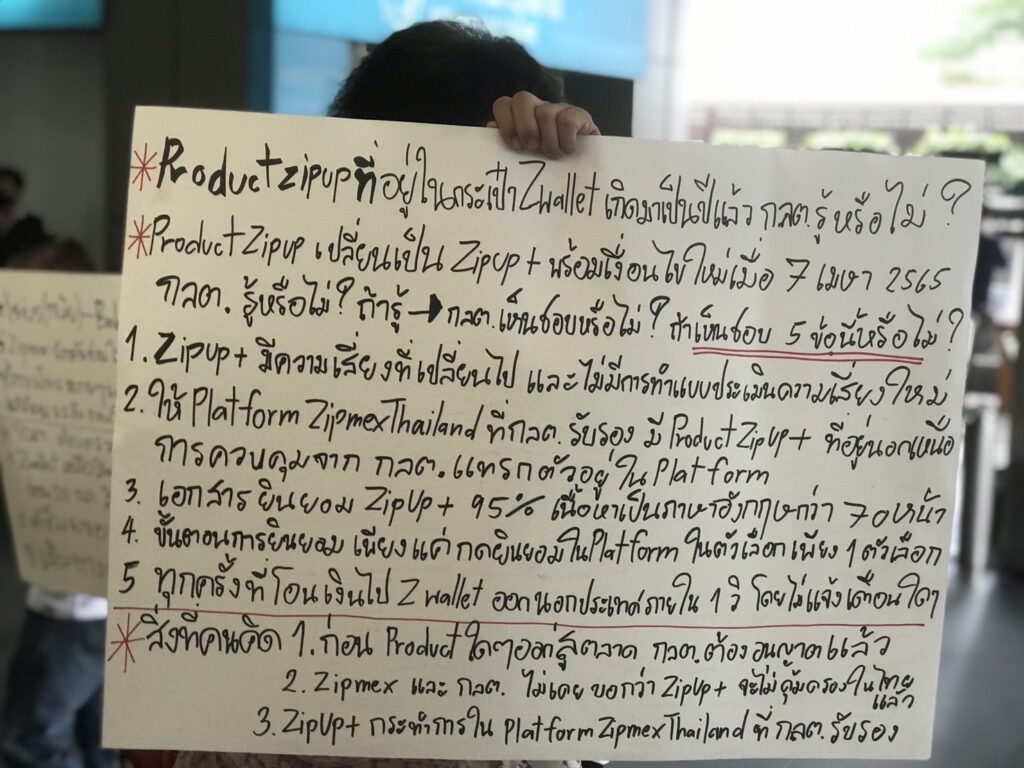 *Product zipup ที่อยู่ในกระเป๋า Zwallet เกิดมาเป็นปีแล้ว กลต. รู้หรือไม่ ?
*Product Zipup เปลี่ยนเป็น Zipup+ พร้อมเงื่อนไขใหม่เมื่อ 7 เมษา 2565
กลต. รู้หรือไม่ ? ถ้ารู้ → กลต. เห็นชอบหรือไม่ ? ถ้าเห็นชอบ 5 ข้อนี้หรือไม่ ?
1. Zipup+ มีความเสี่ยงที่เปลี่ยนไป และไม่มีการทำแบบประเมินความเสี่ยงใหม่
2. ให้ Platform Zipmex Thailand ที่กลต. รับรอง มี Product ZipUp+ ที่อยู่นอกเหนือ
การควบคุมจาก กลต. แทรกตัวอยู่ใน Platform
3. เอกสารยินยอม ZipUp+ 95% เนื้อหาเป็นภาษาอังกฤษกว่า 70 หน้า
4. ขั้นตอนการยินยอม เพียงแค่ กดยินยอมใน Platform ในตัวเลือก เพียง 1 ตัวเลือก
5 ทุกครั้งที่โอนเงินไป Z wallet ออกนอกประเทศภายใน 1 วิ โดยไม่แจ้งเตือนใดๆ
*สิ่งที่คนคิด 1. ก่อน Product ใดๆออกสู่ตลาด กลต. ต้องอนุญาตแล้ว
2. Zipmex และ กลต. ไม่เคย บอกว่า ZipUp+ จะไม่คุ้มครองในไทยแล้ว
3. ZipUp+ กระทำการใน Platform Zipmex Thailand ที่ กลต. รับรอง